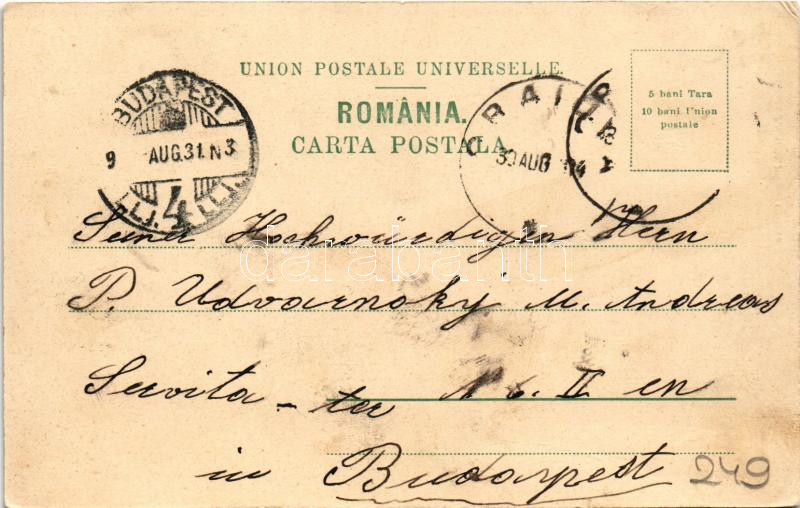 UNION POSTALE UNIVERSELLE.
ROMÂNIA.
CARTA POSTALA
5 bani Tara
10 bani Union
postale
BUDAPEST
9 AUG.31.N3
4
BRAILA
30 AUG 04
Hochwürdigen Hern
P. Udvarnoky M. Andreas
Servita - ter No. II en
in Budapest
249
darabanth